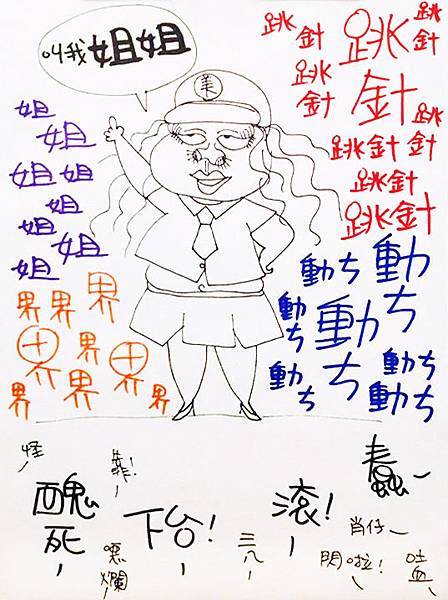 叫我姐姐
美
姐
姐
姐姐
姐
姐姐
姐
跳針
跳針
跳針
跳針
跳
跳針針
跳針
跳針
界
界界
界界
界界
界界
動ち
動ち
動ち
動ち
動ち
動ち
動ち
怪~
靠!
蠢~
醜死~
下台!~
滾!~
肖仔~
噁爛~
三八~
閃啦!
吐血~